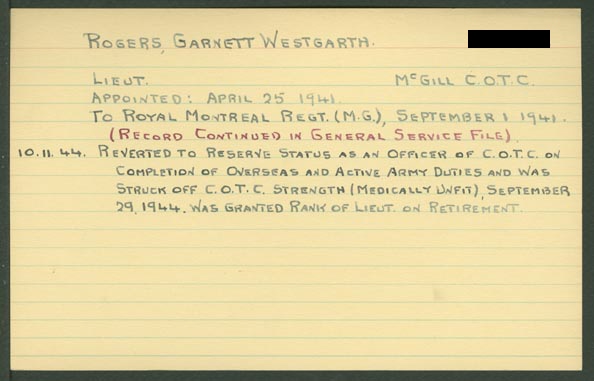 ROGERS, GARNETT WESTGARTH.
LIEUT. McGILL C.O.T.C.
APPOINTED: APRIL 25 1941.
TO ROYAL MONTREAL REGT. (M.G.), SEPTEMBER 1 1941.
(RECORD CONTINUED IN GENERAL SERVICE FILE)
10.11.44. REVERTED TO RESERVE STATUS AS AN OFFICER OF C.O.T.C. ON
COMPLETION OF OVERSEAS AND ACTIVE ARMY DUTIES AND WAS
STRUCK OFF C.O.T.C. STRENGTH (MEDICALLY UNFIT), SEPTEMBER
29, 1944. WAS GRANTED RANK OF LIEUT. ON RETIREMENT.